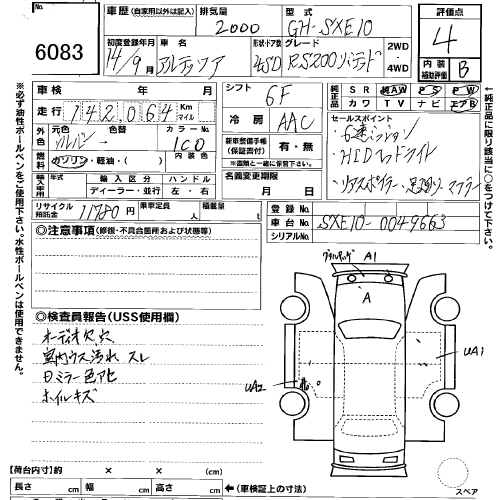 6083
車歴 (自家用以外は記入)
排気量 2000
型式 GH-SXE10
初度登録年月 14/9月
車名 アルテッツァ
形状・ドア数 4SD
グレード RS200
2WD・4WD
評価点 4
内装補助評価 B
車検 年 月
走行 142,064 Km マイル
シフト 6F
冷房 AAC
純正品 SR 純AW PS PW
カワ TV ナビ エアB
外色 元色 シルバー 色替 ー
カラーNo. 1C0
内装色
燃料 ガソリン・軽油・( )
新車整備手帳(保証書付) 有・無
※書類と一緒に保管。
セールスポイント
6速ミッション
HIDヘッドライト
リアスポイラー
マフラー
輸入車用 輸入区分 ディーラー・並行
ハンドル 左・右
名義変更期限 月 日
リサイクル預託金 11980円
乗車定員 人
積載量 t
登録No.
車台No. SXE10-0049663
シリアルNo.
◎注意事項 (修復・不具合箇所および状態等)
A1
A
UA1
UA2
◎検査員報告 (USS使用欄)
オーディオ欠、穴
室内ウス汚れ スレ
日ミラー色アセ
ホイルキズ
スペア
【荷台内寸】約 × × (cm)
長さ cm 幅 cm 高さ cm ←(車検証上の寸法)
※必ず油性ボールペンをご使用下さい。水性ボールペンは使用できません。
★純正品に限り該当に○をつけて下さい。